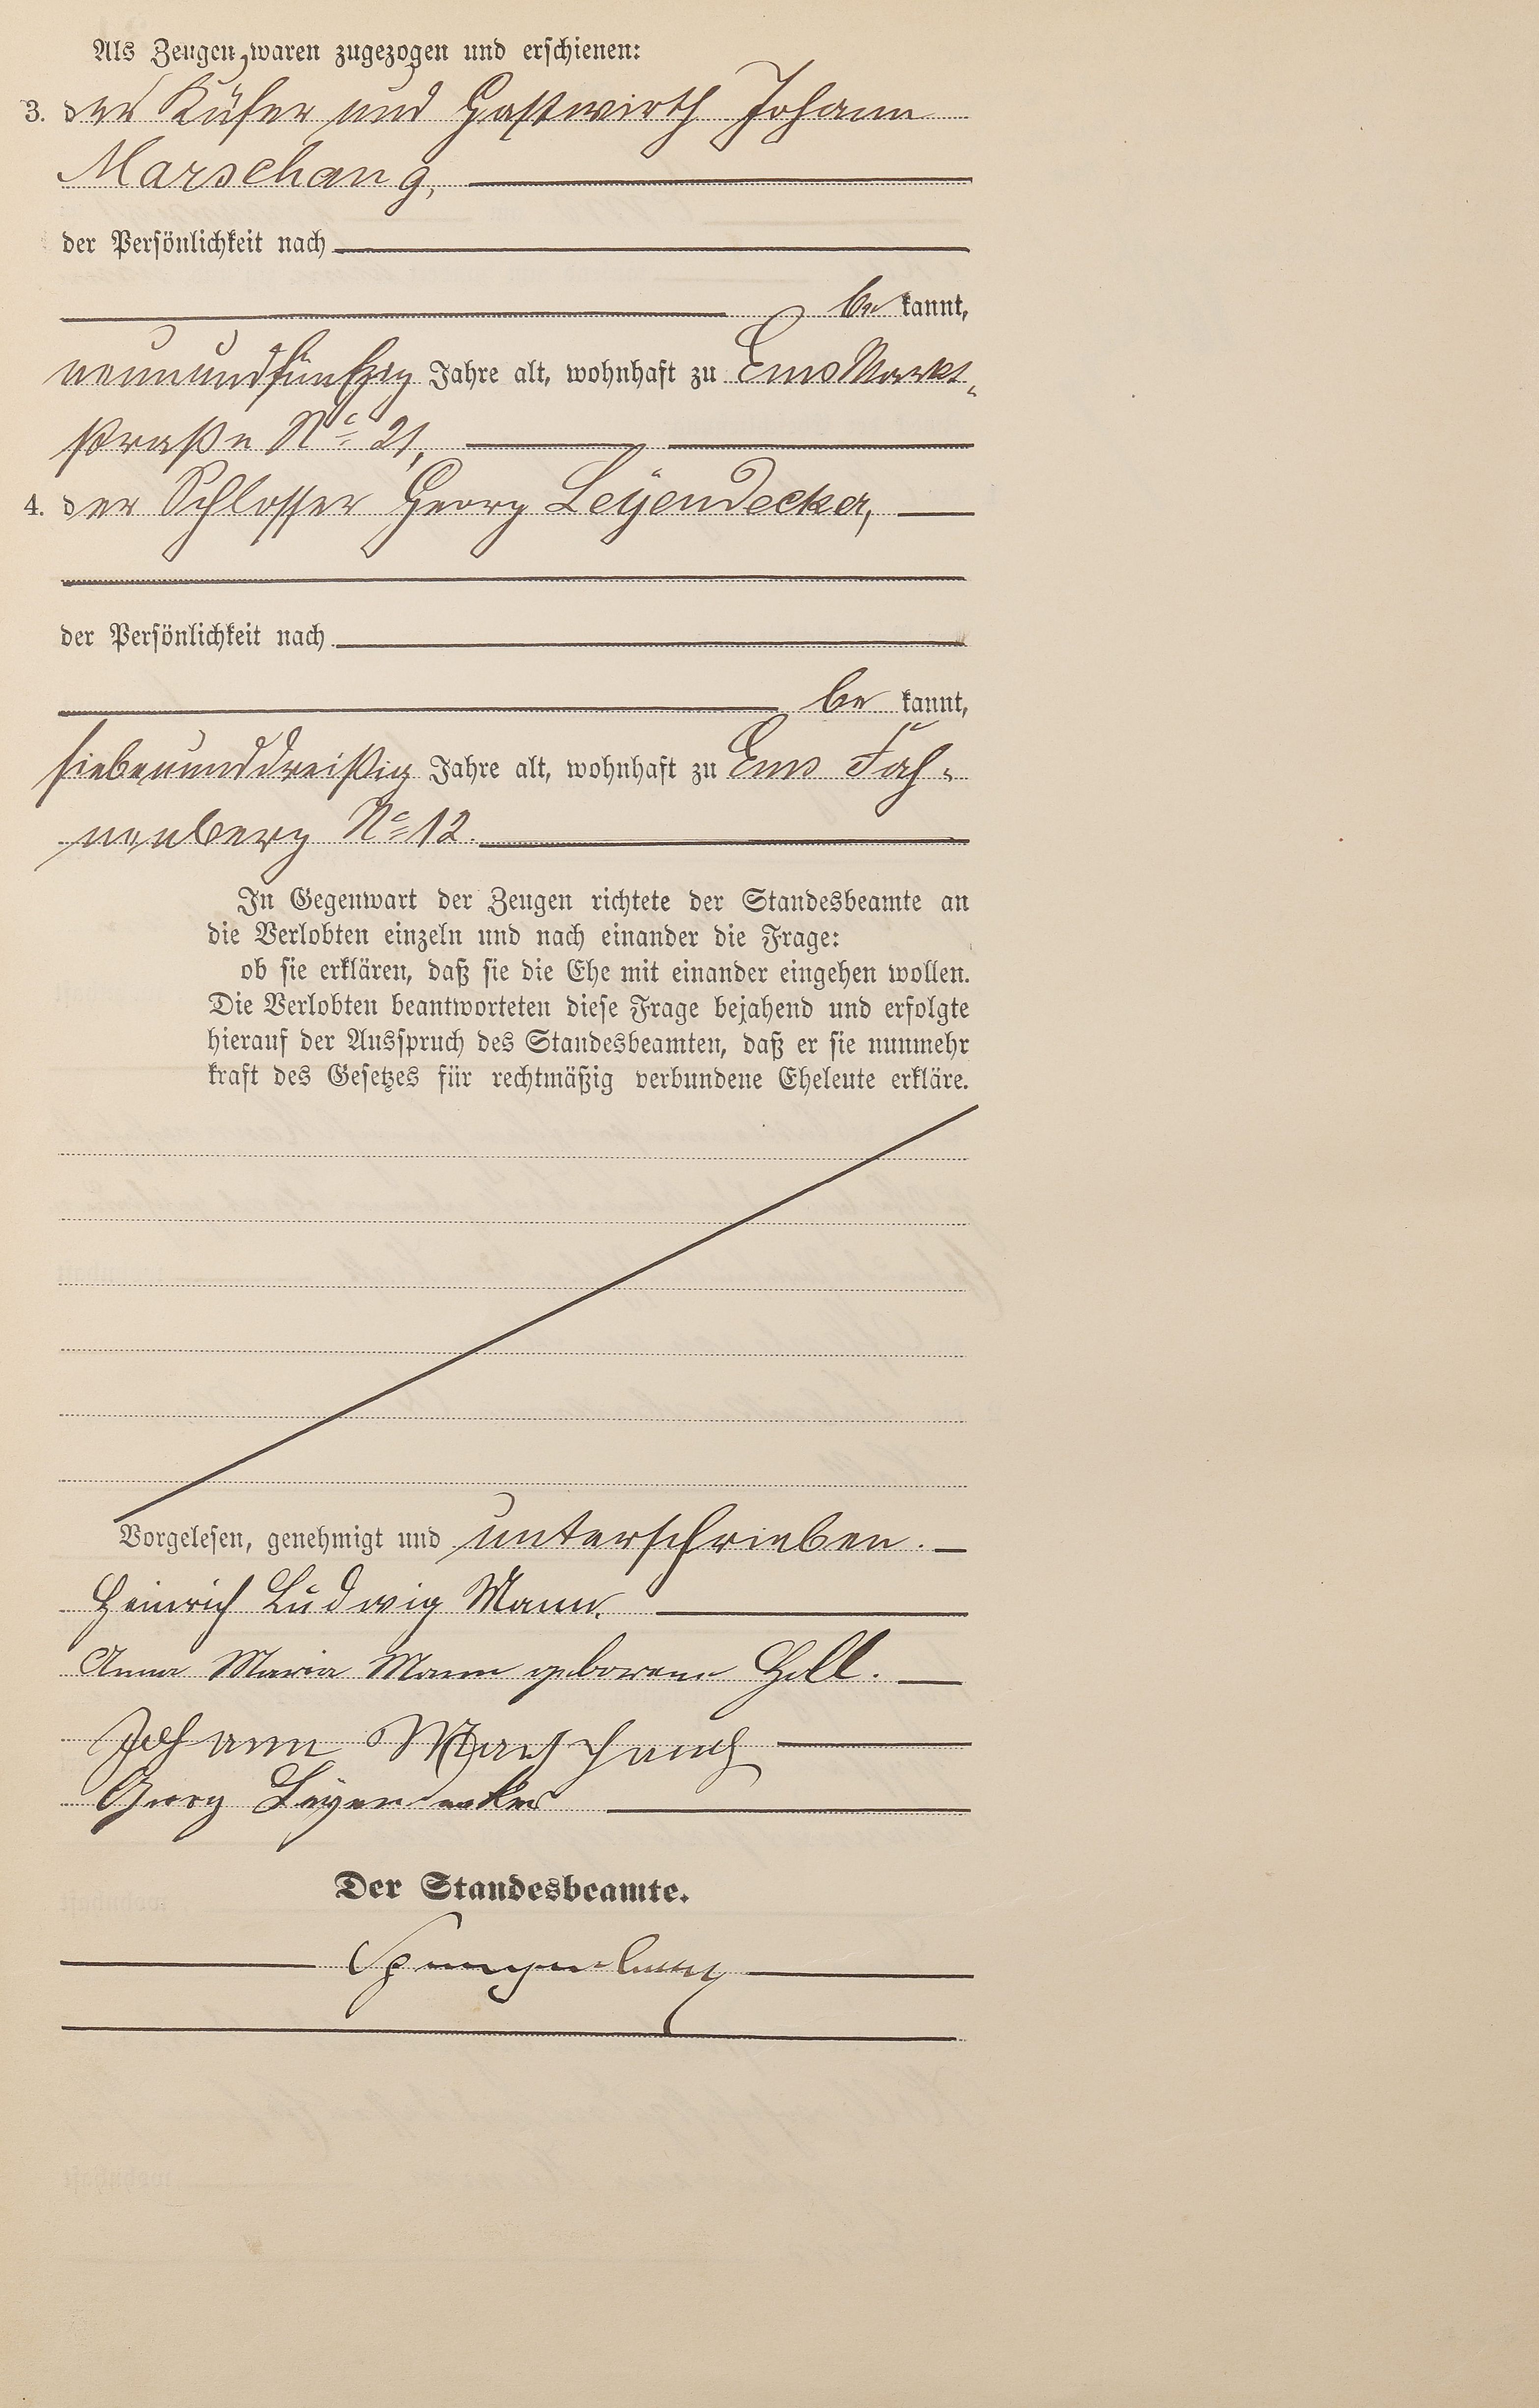 Als Zeugen waren zugezogen und erschienen:
3. der Küfer und Gastwirth Johann
Marschang,
der Persönlichkeit nach
be kannt,
neunundfünfzig Jahre alt, wohnhaft zu Ems Markt-
straße No 21,
4. der Schlosser Georg Leÿendecker,
der Persönlichkeit nach
be kannt,
siebenunddreißig Jahre alt, wohnhaft zu Ems Fah-
nenberg No 12.
In Gegenwart der Zeugen richtete der Standesbeamte an
die Verlobten einzeln und nach einander die Frage:
ob sie erklären, daß sie die Ehe mit einander eingehen wollen.
Die Verlobten beantworteten diese Frage bejahend und erfolgte
hierauf der Ausspruch des Standesbeamten, daß er sie nunmehr
kraft des Gesetzes für rechtmäßig verbundene Eheleute erkläre.
Vorgelesen, genehmigt und unterschrieben.
Heinrich Ludwig Mann.
Anna Maria Mann geborene Holl.
Johann Marschang
Georg Leyendecker
Der Standesbeamte.
Spangenberg